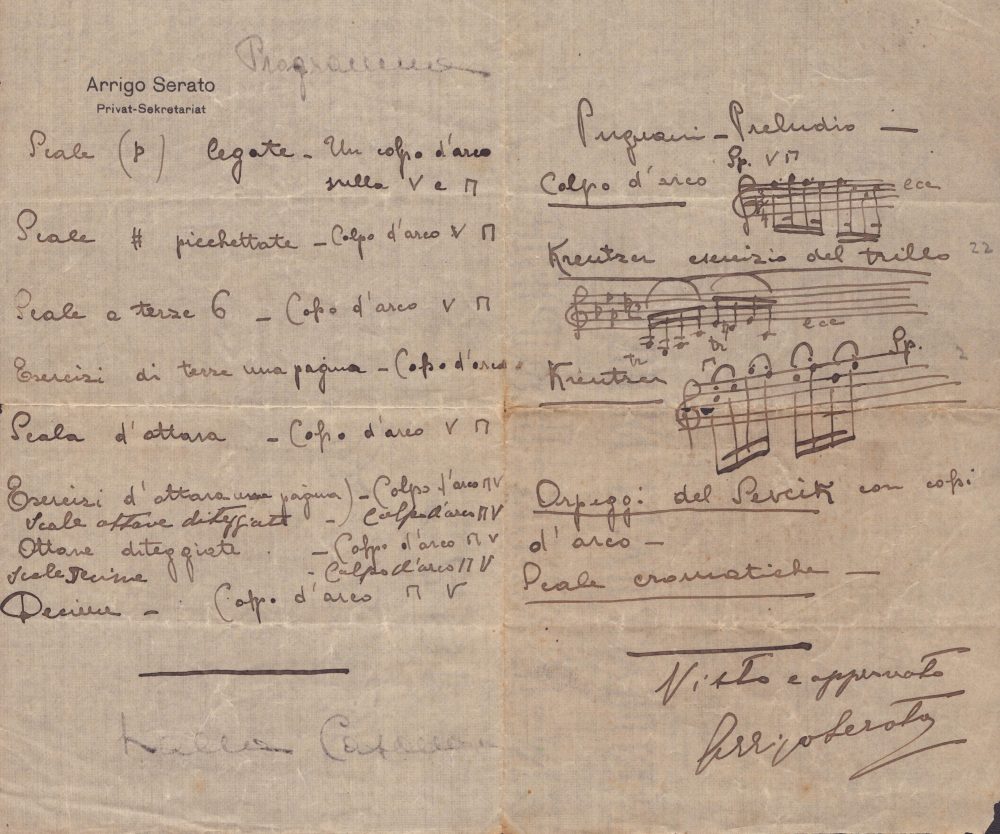 Programma
Arrigo Serato
Privat-Sekretariat
Scale (p) legate - Un colpo d'arco
sulla V e Π
Scale # picchettate - Colpo d'arco V Π
Scale a terze 6 - Colpo d'arco V Π
Esercizi di terze una pagina - Colpo d'arco
Scala d'ottava - Colpo d'arco V Π
Esercizi d'ottava una pagina) - Colpo d'arco Π V
Scale ottave diteggiate -) Colpo d'arco Π V
Ottave diteggiate - Colpo d'arco Π V
Scale Decime - Colpo d'arco Π V
Decime - Colpo d'arco Π V
Pugnani - Preludio -
Sp. V Π
Colpo d'arco ecc
Kreutzer esercizio del trillo 22
tr tr ecc
Kreutzer Π Sp. 2
Orpeggi del Sevcik con colpi
d'arco -
Scale cromatiche -
Visto e approvato
Arrigo Serato